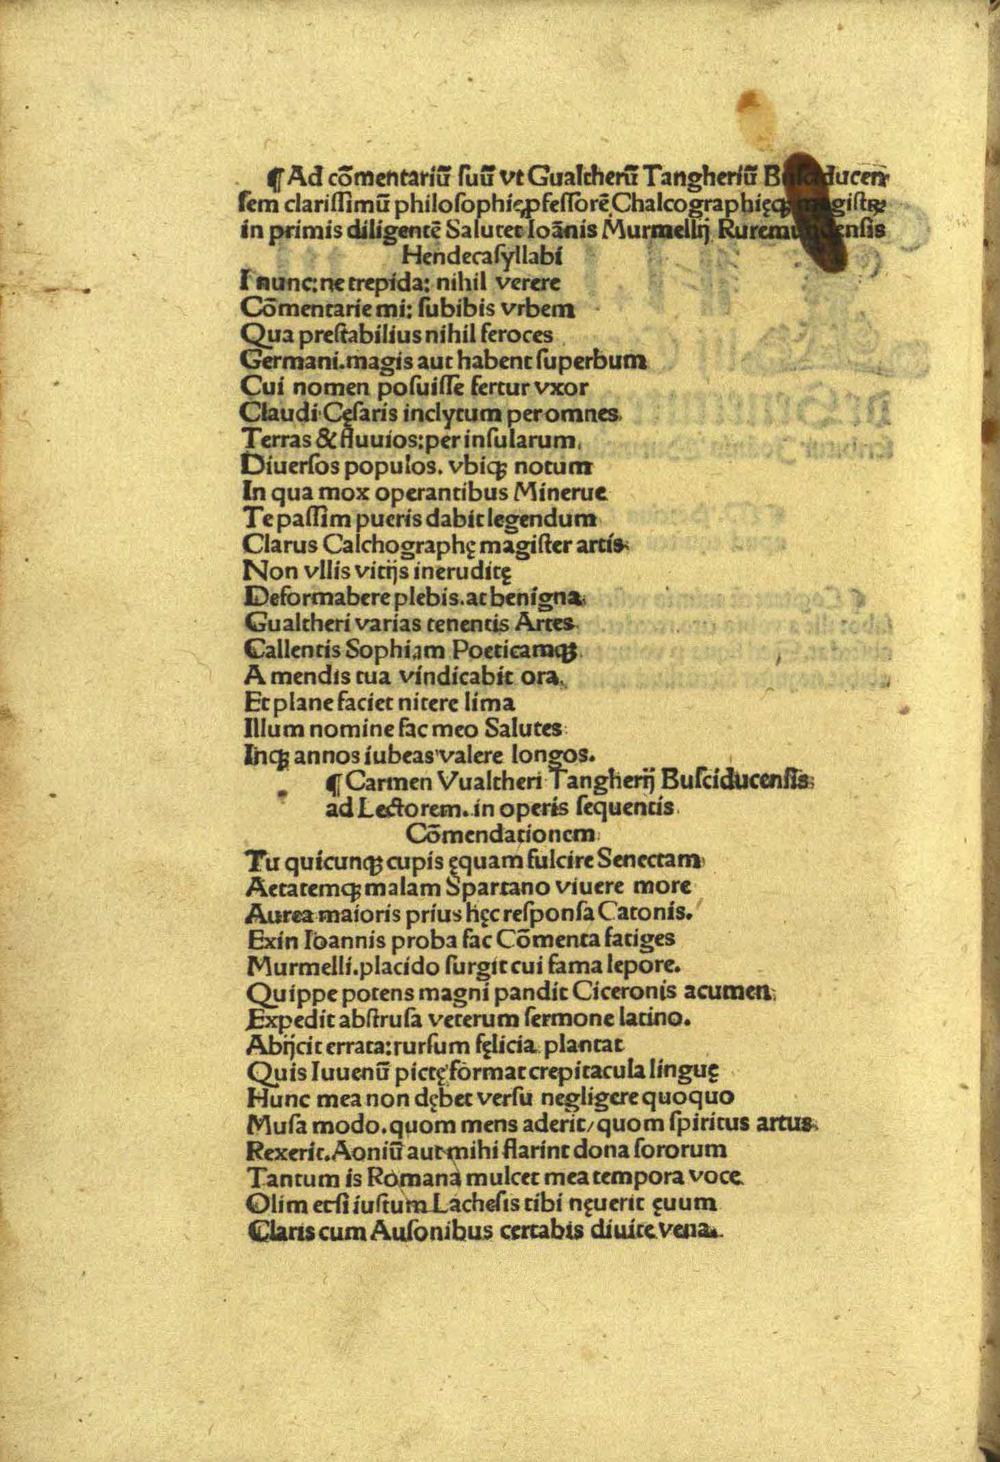 ¶ Ad cōmentariū ſuū vt Gualtherū Tangheriū Buſciducen⸗
ſem clariſſimū philoſophię ꝓfeſſorē Chalcographięqꝫ magiſtrū
in primis diligentē Salutet Ioānis Murmellij Ruremundenſis
Hendecaſyllabi
I nunc: ne trepida: nihil verere
Cōmentarie mi: ſubibis vrbem
Qua preſtabilius nihil feroces
Germani. magis aut habent ſuperbum
Cui nomen poſuiſſe fertur vxor
Claudi Cęſaris inclytum per omnes
Terras & fluuios: per inſularum
Diuerſos populos. vbiqꝫ notum
In qua mox operantibus Minerue
Te paſſim pueris dabit legendum
Clarus Calchographę magiſter artis
Non vllis vitijs ineruditę
Deformabere plebis. at benigna
Gualtheri varias tenentis Artes
Callentis Sophiam Poeticamqꝫ
A mendis tua vindicabit ora
Et plane faciet nitere lima
Illum nomine fac meo Salutes
Inqꝫ annos iubeas valere longos.
¶ Carmen Vualtheri Tangherij Buſciducenſis
ad Lectorem. in operis ſequentis
Cōmendationem
Tu quicunqꝫ cupis ęquam fulcire Senectam
Aetatemqꝫ malam Spartano viuere more
Aurea maioris prius hęc reſponſa Catonis.
Exin Ioannis proba fac Cōmenta fatiges
Murmelli. placido ſurgit cui fama lepore.
Quippe potens magni pandit Ciceronis acumen
Expedit abſtruſa veterum ſermone latino.
Abijcit errata: rurſum fęlicia plantat
Quis Iuuenū pictę format crepitacula linguę
Hunc mea non dębet verſu negligere quoquo
Muſa modo. quom mens aderit/ quom ſpiritus artus
Rexerit. Aoniū aut mihi flarint dona ſororum
Tantum is Romana mulcet mea tempora voce
Olim etſi iuſtum Lacheſis tibi nęuerit ęuum
Claris cum Auſonibus certabis diuite vena.